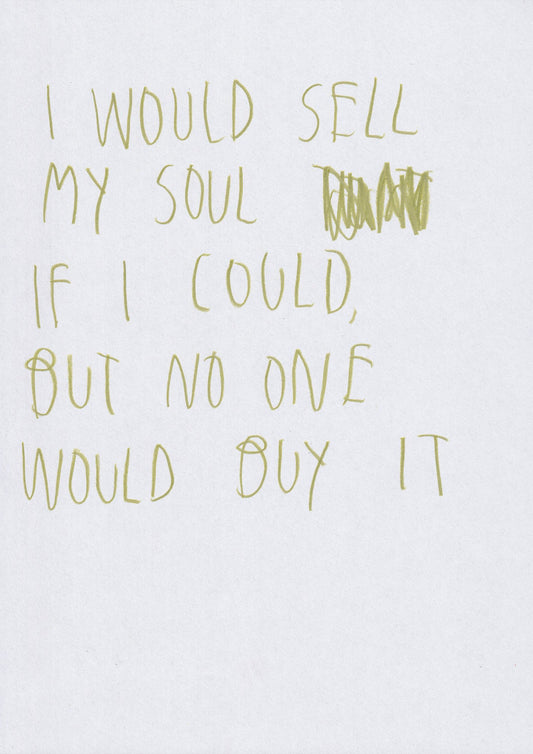 I WOULD SELL
MY SOUL
IF I COULD,
BUT NO ONE
WOULD BUY IT